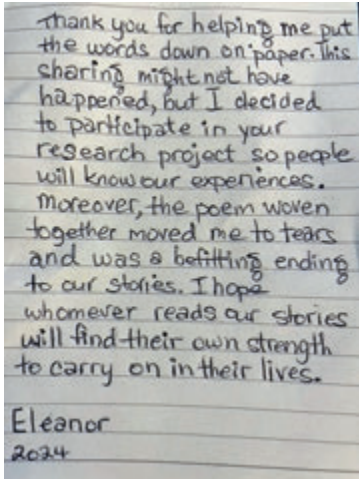 Thank you for helping me put
the words down on paper. This
sharing might not have
happened, but I decided
to participate in your
research project so people
will know our experiences.
Moreover, the poem woven
together moved me to tears
and was a befitting ending
to our stories. I hope
whomever reads our stories
will find their own strength
to carry on in their lives.
Eleanor
2024